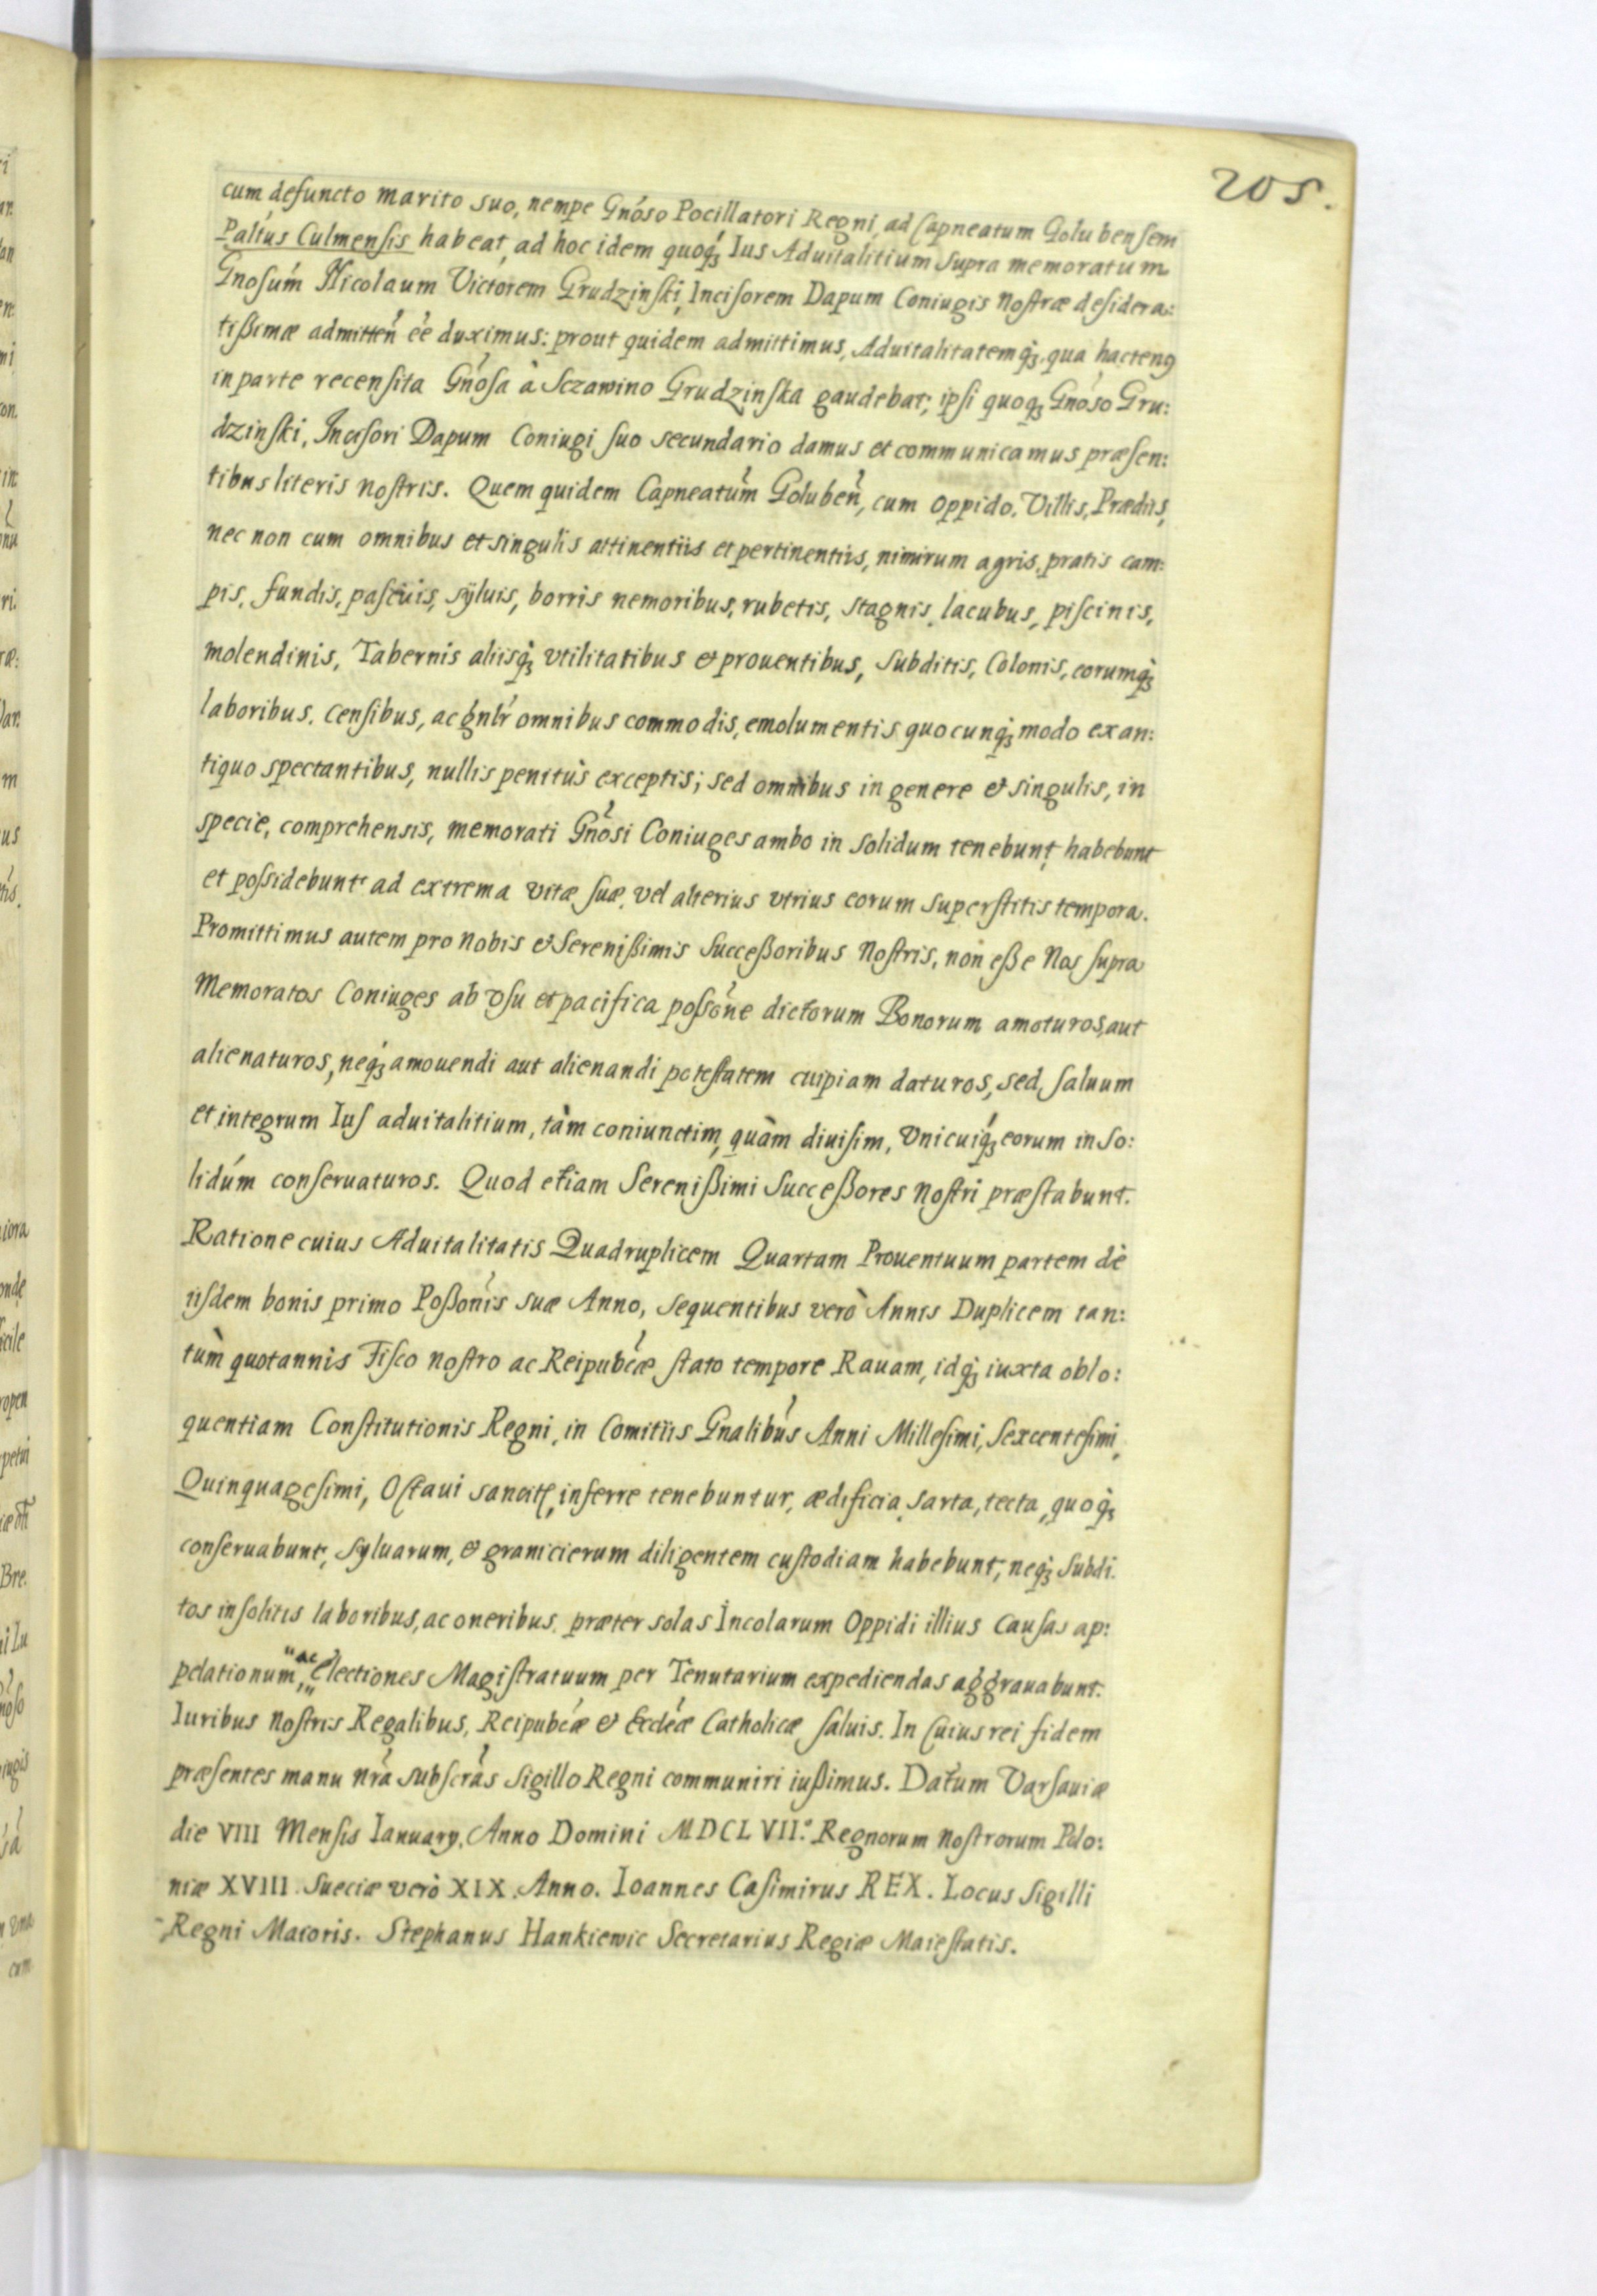 205.
cum defuncto marito suo, nempe Gnóso Pocillatori Regni, ad Capneatum Golubensem
Paltús Culmensis habeat, ad hoc idem quoq́ꝫ Ius Aduitalitium supra memoratum
Gnosúm Nicolaum Victorem Grudzinski, Incisorem Dapum Coniugis nostræ desidera:
tißimæ admitteń ée duximus: prout quidem admittimus, Aduitalitatemq́ꝫ qua hactenꝰ
in parte recensita Gnósa à Sczawino Grudzinska gaudebat; ipsi quoqꝫ Gnóso Gru:
dzinski, Incisori Dapum Coniugi suo secundario damus et communicamus præsen:
tibus literis nostris. Quem quidem Capneatum̃ Golubeń, cum oppido, Villis, Prædiis,
nec non cum omnibus et singulis attinentiis et pertinentiis, nimirum agris, pratis cam:
pis, fundis, pascuis, sÿluis, borris nemoribus, rubetis, stagnis, lacubus, piscinis,
molendinis, Tabernis aliisq́ꝫ vtilitatibus & prouentibus, subditis, Colonis, eorumq́ꝫ
laboribus, censibus, ac gńlr omnibus commodis, emolumentis quocunq́ꝫ modo ex an:
tiquo spectantibus, nullis penitùs exceptis; sed omnibus in genere & singulis, in
specie, comprehensis, memorati Gnósi Coniuges ambo in solidum tenebunt, habebunt
et possidebunt ad extrema vitæ suæ, vel alterius vtrius eorum superstitis tempora.
Promittimus autem pro nobis & Serenißimis Succeßoribus Nostris, non eße Nos supra
Memoratos Coniuges ab vsu et pacifica possońe dictorum Bonorum amoturos, aut
alienaturos, neq́ꝫ amouendi aut alienandi potestatem cuipiam daturos, sed, saluum
et integrum Ius aduitalitium, tàm coniunctim, quàm diuisim, Vnicuiq́ꝫ eorum in so:
lidúm conseruaturos. Quod etiam Serenißimi Succeßores nostri præstabunt.
Ratione cuius Aduitalitatis Quadruplicem Quartam Prouentuum partem dè
iisdem bonis primo Poßońis suæ Anno, sequentibus verò Annis Duplicem tan:
tùm quotannis Fisco nostro ac Reipubćæ stato tempore Rauam, idq́ꝫ iuxta oblo:
quentiam Constitutionis Regni, in Comitiis Gnalibús Anni Millesimi, Sexcentesimi,
Quinquagesimi, Octaui sancitę, inferre tenebuntur, ædificia sarta, tecta, quoq́ꝫ
conseruabunt, Syluarum, & granicierum diligentem custodiam habebunt, neq́ꝫ Subdi.
tos insolitis laboribus, ac oneribus, præter solas Incolarum Oppidi illius Causas ap:
pelationum, ac electiones Magistratuum per Tenutarium expediendas aggrauabunt.
Iuribus nostris Regalibus, Reipubćæ & Eccleæ Catholicæ saluis. In Cuius rei fidem
præsentes manu nrá subscrás Sigillo Regni communiri iußimus. Datum Varsauiæ
die VIII Mensis Ianuary. Anno Domini MDCLVII.º Regnorum nostrorum Polo:
niæ XVIII Sueciæ verò XIX. Anno. Ioannes Casimirus REX. Locus Sigilli
Regni Maioris. Stephanus Hankiewic Secretarius Regiæ Maiestatis.